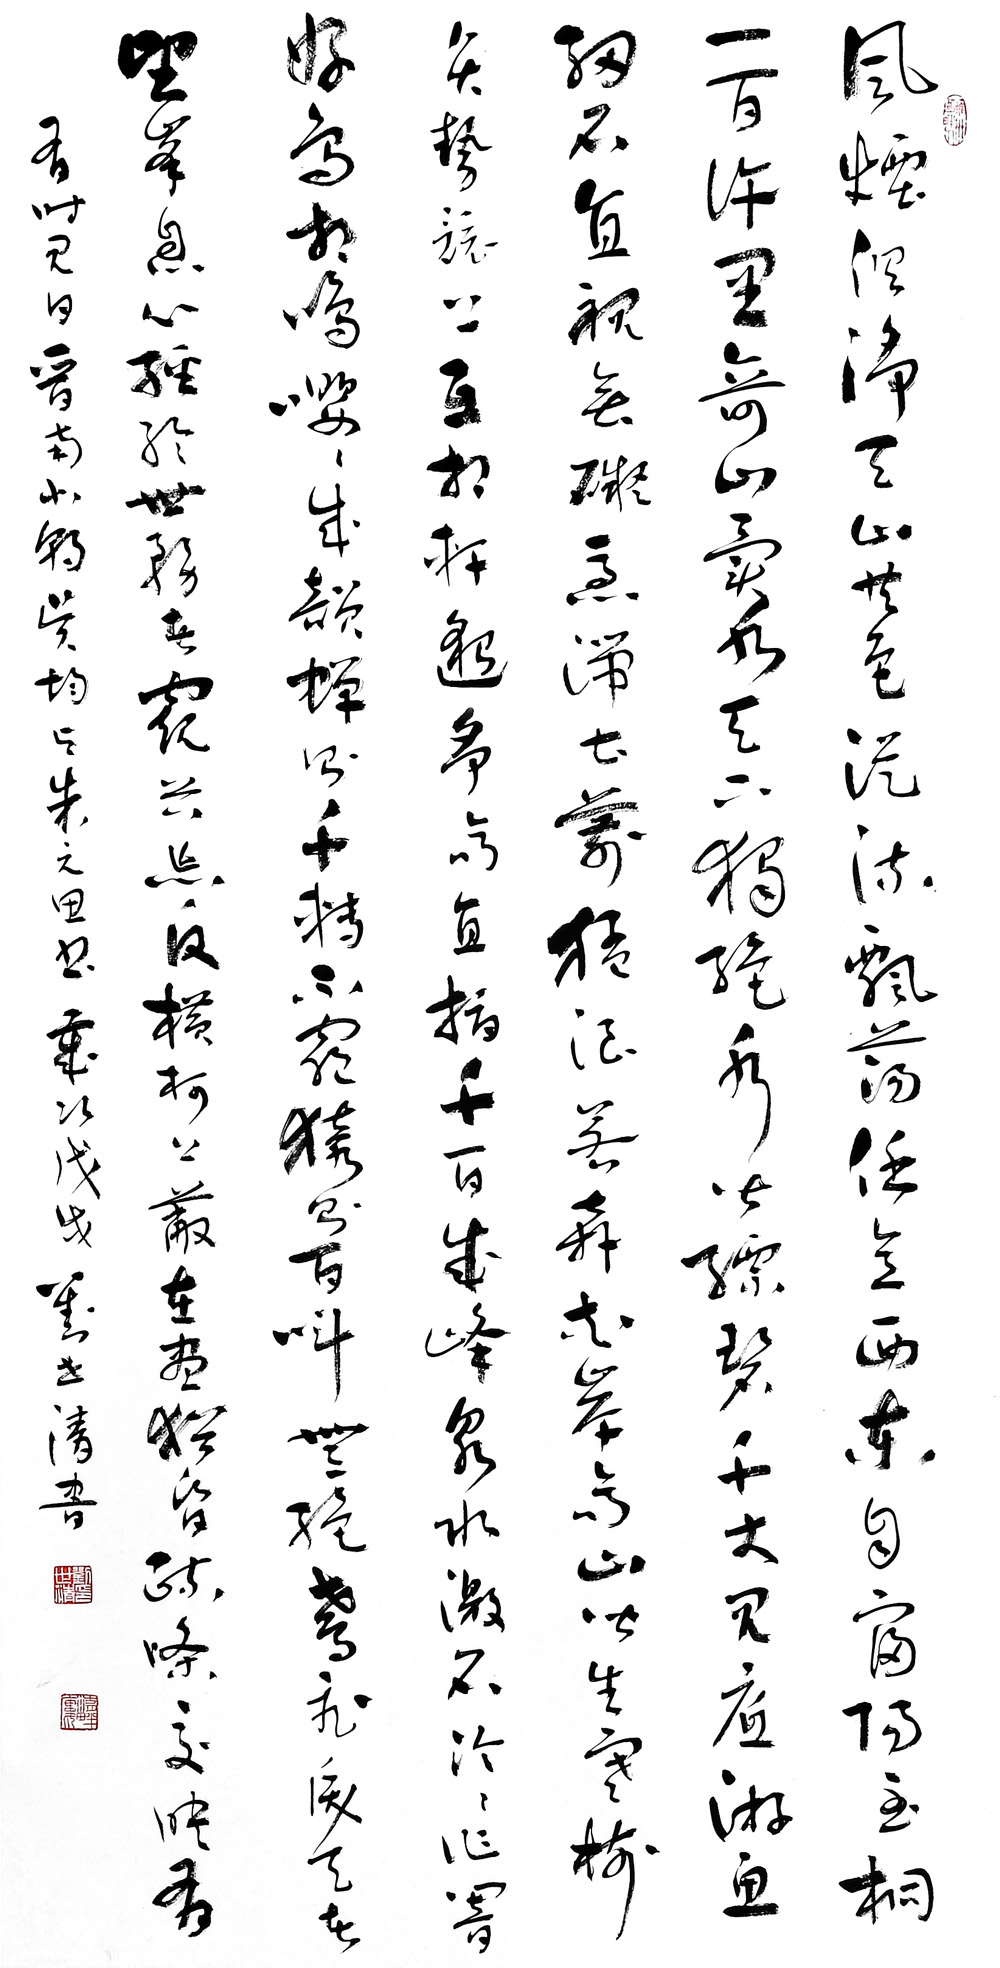 風煙俱淨天山共色從流飄蕩任意西東自富陽至桐
一百許里奇山異水天下獨絶水皆縹碧千丈見底游魚
細石直視無礙急湍甚箭猛浪若奔夾岸高山皆生寒樹
負勢競上互相軒邈爭高直指千百成峰泉水激石泠泠作響
好鳥相鳴嚶嚶成韻蟬則千轉不窮猿則百叫無絶鳶飛戾天者
望峯息心經綸世務者窺谷忘反橫柯上蔽在晝猶昏疏條交映有
有時見日晉南北朝吴均与朱元思書歲次戊戌劉世清書